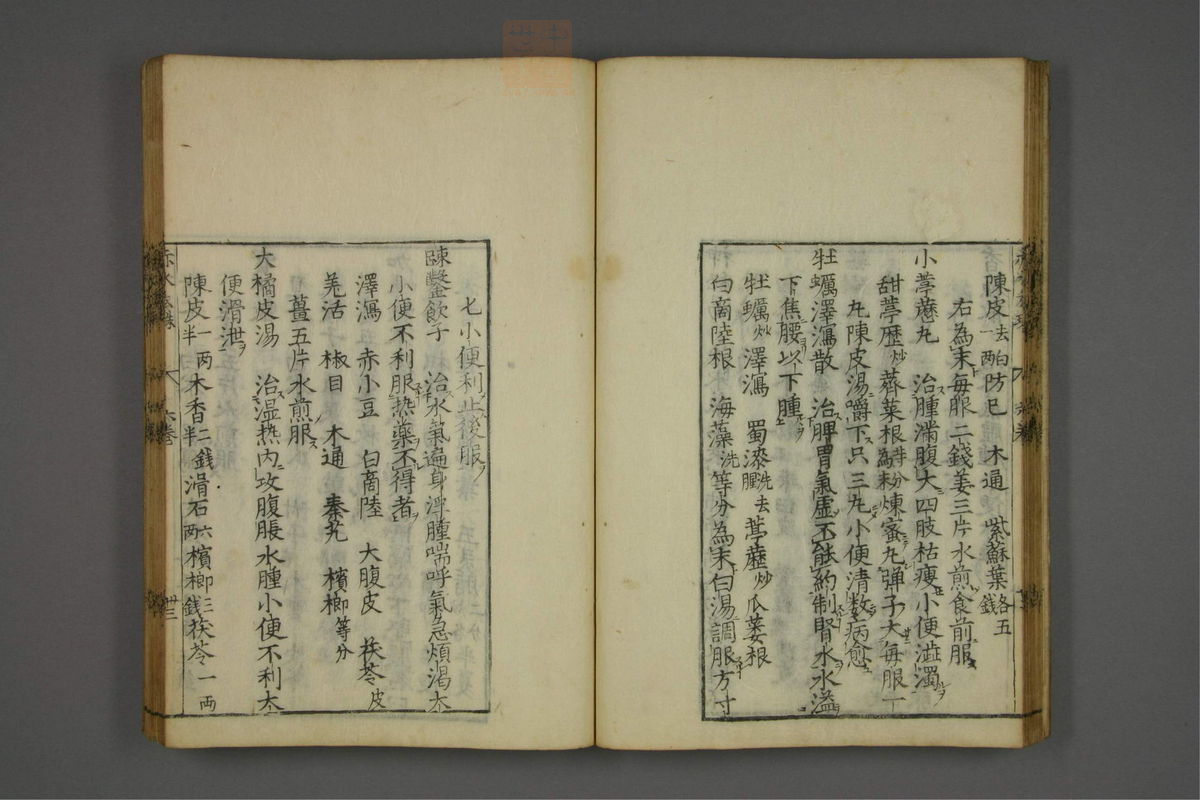 陳皮去白一両防已　木通　紫蘇葉各五錢
右為末毎服二錢姜三片水煎食前服
小葶藶丸　治腫滿腹大四肢枯瘦小便澁濁
甜葶歷炒蕣菜根等分為粉煉蜜丸弾子大毎服一
丸陳皮湯嚼下只三丸小便清数病愈
牡蠣澤瀉散　治脾胃氣虛不能約制腎水水溢
下焦腰以下腫
牡蠣炒　澤瀉　蜀漆洗去腥葶藶炒瓜蔞根
白商陸根　海藻洗等分為末白湯調服方寸
七小便利止後服
踈鑿飲子　治水氣遍身浮腫喘呼氣急煩渴大
小便不利服熱藥不得者
澤瀉　赤小豆　白商陸　大腹皮　茯苓皮
羌活　椒目　木通　秦艽　檳榔等分
薑五片水煎服
大橘皮湯　治湿熱内攻腹脹水腫小便不利大
便滑泄
陳皮一両半木香二錢半滑石六両檳榔三錢茯苓一両
六巻
廿三